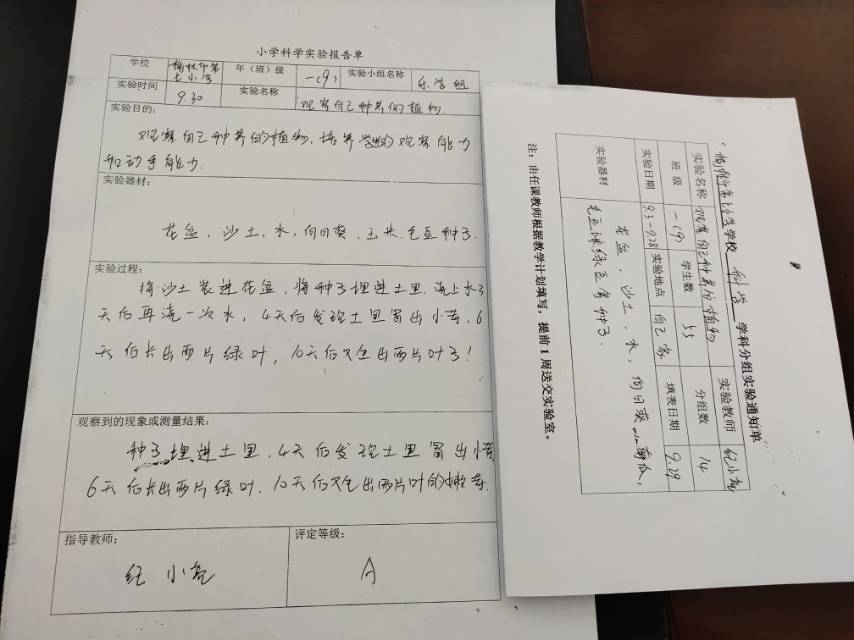 小学科学实验报告单
学校 榆林市第七小学 年（班）级 一(9) 实验小组名称 乐学组
实验时间 9.30 实验名称 观察自己种养的植物.
实验目的：
观察自己种养的植物，培养学生的观察能力
和动手能力.
实验器材：
花盆，沙土，水，向日葵，玉米，毛豆种子.
实验过程：
将沙土装进花盆，将种子埋进土里，浇上水3
天后再浇一次水，4天后发现土里冒出小芽，6
天后长出两片绿叶，10天后又包出两片叶子！
观察到的现象或测量结果：
种子埋进土里，4天后发现土里冒出小芽
6天后长出两片绿叶，10天后又包出两片叶的嫩芽.
指导教师： 评定等级：
纪小亮 A
榆林市第七小学学校 科学 学科分组实验通知单
实验名称 观察自己种养的植物 实验教师 纪小亮
班级 一(9) 学生数 55 分组数 14
实验日期 9.3-9.28 实验地点 自己家 填表日期 9.29
实验器材
花盆，沙土，水，向日葵
毛豆 绿豆 种子.
注：由任课教师根据教学计划填写，提前1周送交实验室。